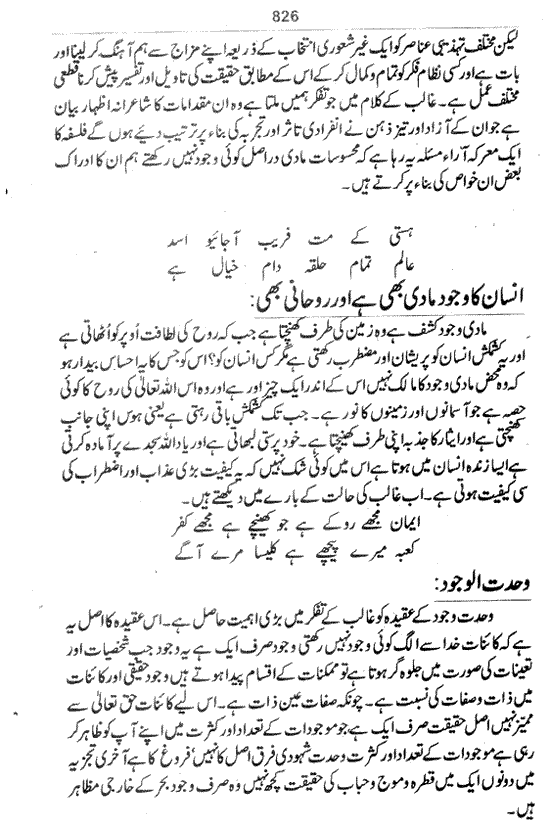 826
لیکن مختلف تہذیبی عناصر کو ایک غیر شعوری انتخاب کے ذریعہ اپنے مزاج سے ہم آہنگ کر لینا اور
بات ہے اور کسی نظام فکر کو تمام و کمال کر کے اس کے مطابق حقیقت کی تاویل اور تفسیر پیش کرنا قطعی
مختلف عمل ہے۔ غالب کے کلام میں جو تفکر ہمیں ملتا ہے وہ ان مقدامات کا شاعرانہ اظہار بیان
ہے جو ان کے آزاد اور تیز ذہن نے انفرادی تاثر اور تجربہ کی بناء پر ترتیب دیئے ہوں گے فلسفہ کا
ایک معرکہ آراء مسئلہ یہ رہا ہے کہ محسوسات مادی دراصل کوئی وجود نہیں رکھتے ہم ان کا ادراک
بعض ان خواص کی بناء پر کرتے ہیں۔
ہستی کے مت فریب آ جائیو اسد
عالم تمام حلقہ دام خیال ہے
انسان کا وجود مادی بھی ہے اور روحانی بھی:
مادی وجود کشف ہے وہ زمین کی طرف کھنچتا ہے جب کہ روح کی لطافت اُوپر کو اُٹھاتی ہے
اور یہ کشمکش انسان کو پریشان اور مضطرب رکھتی ہے مگر کس انسان کو؟ اس کو جس کا یہ احساس بیدار ہو
کہ وہ محض مادی وجود کا مالک نہیں اس کے اندر ایک چیز اور ہے اور وہ اس اللہ تعالیٰ کی روح کا کوئی
حصہ ہے جو آسمانوں اور زمینوں کا نور ہے۔ جب تک کشمکش باقی رہتی ہے یعنی ہوس اپنی جانب
کھینچتی ہے اور ایثار کا جذبہ اپنی طرف کھینچتا ہے۔ خود پرستی لبھاتی ہے اور یاد اللہ سجدے پر آمادہ کرتی
ہے ایسا زندہ انسان میں ہوتا ہے اس میں کوئی شک نہیں کہ یہ کیفیت بڑی عذاب اور اضطراب کی
سی کیفیت ہوتی ہے۔ اب غالب کی حالت کے بارے میں دیکھتے ہیں۔
ایمان مجھے روکے ہے جو کھینچے ہے مجھے کفر
کعبہ میرے پیچھے ہے کلیسا مرے آگے
وحدت الوجود:
وحدت وجود کے عقیدہ کو غالب کے تفکر میں بڑی اہمیت حاصل ہے۔ اس عقیدہ کا اصل یہ
ہے کہ کائنات خدا سے الگ کوئی وجود نہیں رکھتی وجود صرف ایک ہے یہ وجود جب شخصیات اور
تعینات کی صورت میں جلوہ گر ہوتا ہے تو ممکنات کے اقسام پیدا ہوتے ہیں وجود حقیقی اور کائنات
میں ذات وصفات کی نسبت ہے۔ چونکہ صفات عین ذات ہے۔ اس لیے کائنات حق تعالیٰ سے
ممیز نہیں اصل حقیقت صرف ایک ہے جو موجودات کے تعداد اور کثرت میں اپنے آپ کو ظاہر کر
رہی ہے موجودات کے تعداد اور کثرت وحدت شہودی فرق اصل کا نہیں، فروغ کا ہے آخری تجزیہ
میں دونوں ایک میں قطرہ و موج و حباب کی حقیقت کچھ نہیں وہ صرف وجود بحر کے خارجی مظاہر
ہیں۔